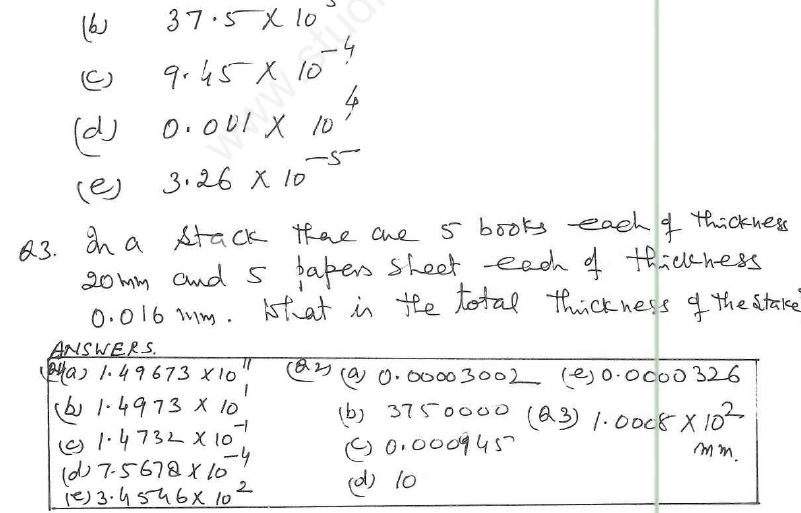 (b) 37.5 X 10^5
(c) 9.45 X 10^-4
(d) 0.001 X 10^4
(e) 3.26 X 10^-5
Q3. In a stack there are 5 books each of thickness
20mm and 5 papers sheet each of thickness
0.016 mm. What is the total thickness of the stake
ANSWERS.
(Q1)(a) 1.49673 X 10^11 (Q2) (a) 0.00003002 (e) 0.0000326
(b) 1.4973 X 10^1 (b) 3750000 (Q3) 1.0008 X 10^2 mm.
(c) 1.4732 X 10^-1 (c) 0.000945
(d) 7.5678 X 10^-4 (d) 10
(e) 3.4546 X 10^2